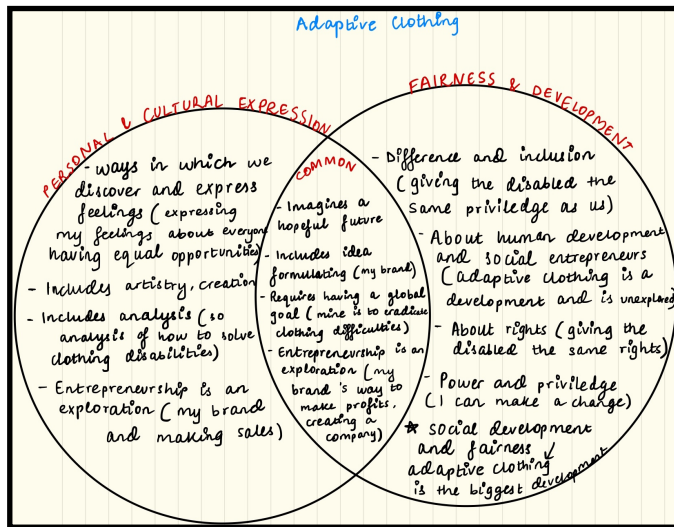 Adaptive Clothing
PERSONAL & CULTURAL EXPRESSION
- ways in which we
discover and express
feelings (expressing
my feelings about everyone
having equal opportunities)
- Includes artistry, creation
- Includes analysis (so
analysis of how to solve
clothing disabilities)
- Entrepreneurship is an
exploration (my brand
and making sales)
COMMON
- Imagines a
hopeful future
- Includes idea
formulating (my brand)
- Requires having a global
goal (mine is to eradicate
clothing difficulties)
- Entrepreneurship is an
exploration (my
brand's way to
make profits,
creating a
company)
FAIRNESS & DEVELOPMENT
- Difference and inclusion
(giving the disabled the
same priviledge as us)
- About human development
and social entrepreneurs
(adaptive clothing is a
development and is unexplored)
- About rights (giving the
disabled the same rights)
- Power and priviledge
(I can make a change)
★ social development
and fairness ↙
adaptive clothing
is the biggest development